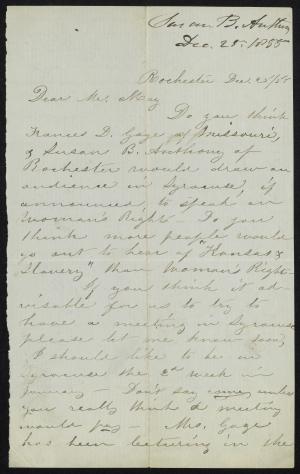 Susan B. Anthony
Dec. 25. 1855
Rochester Dec. 25/55
Dear Mr. May
Do you think
Frances D. Gage of Missouri,
& Susan B. Anthony of
Rochester would draw an
audience in Syracuse, if
announced to speak on
Woman's Right - Do you
think more people would
go out to hear of "Kansas &
Slavery" than Woman's Right -
If you think it ad-
visable for us to try to
have a meeting in Syracuse
please let me know soon,
I should like to be in
Syracuse the 2d week in
January - Don't say come, unless
you really think a meeting
would pay - Mrs. Gage
has been lecturing in the